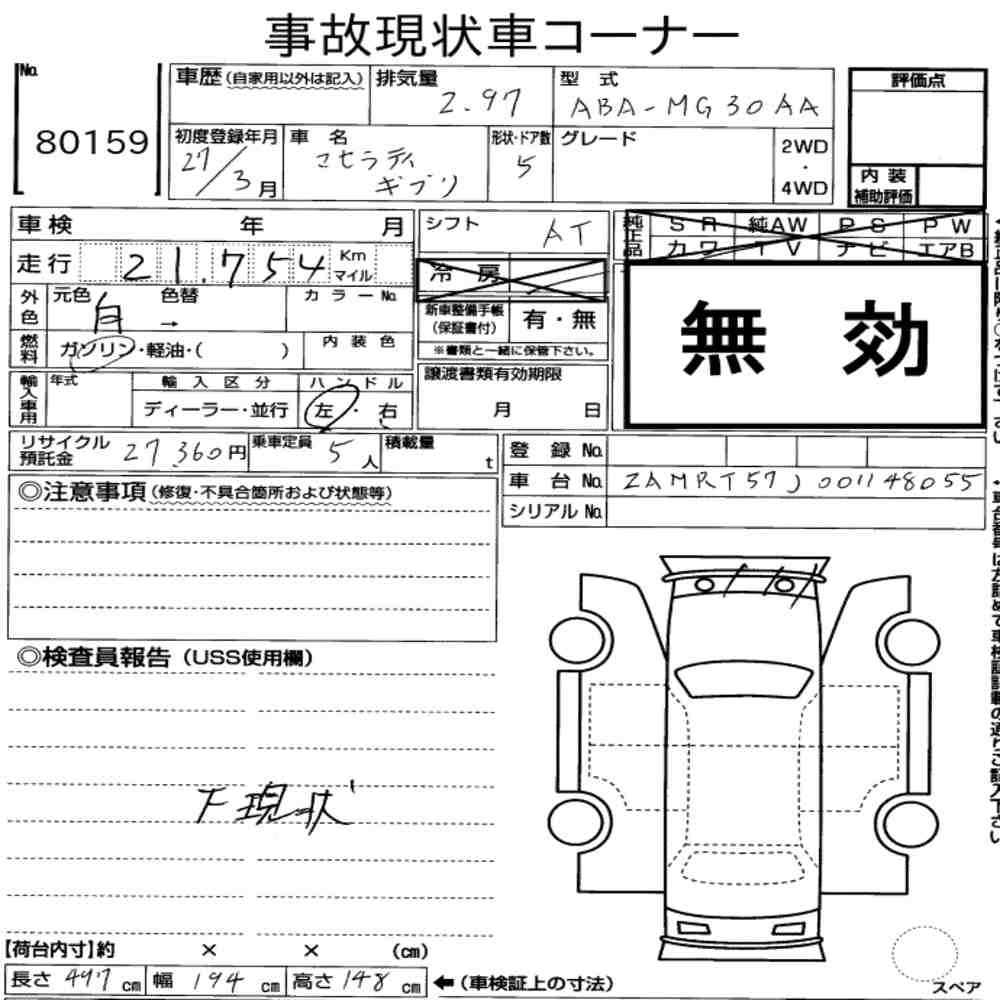 事故現状車コーナー
No.
80159
車歴(自家用以外は記入)
排気量
2.97
型式
ABA-MG30AA
評価点
初度登録年月
27/3月
車名
マセラティ
ギブリ
形状・ドア数
5
グレード
2WD
・
4WD
内装
補助評価
車検 年 月
シフト
AT
純正品
SR 純AW PS PW
カワ TV ナビ エアB
走行 21.754 Km
マイル
冷房
外色
元色 色替
白 →
カラーNo.
新車整備手帳
(保証書付)
有・無
※書類と一緒に保管下さい。
無効
燃料
ガソリン・軽油・( )
内装色
輸入車用
年式
輸入区分
ディーラー・並行
ハンドル
左・右
譲渡書類有効期限
月 日
リサイクル
預託金
27360円
乗車定員
5人
積載量
t
登録No.
車台No. ZAMRT57J001148055
シリアルNo.
◎注意事項(修復・不具合箇所および状態等)
◎検査員報告(USS使用欄)
下現状
【荷台内寸】約 × × (cm)
長さ497cm 幅194cm 高さ148cm ←(車検証上の寸法)
スペア